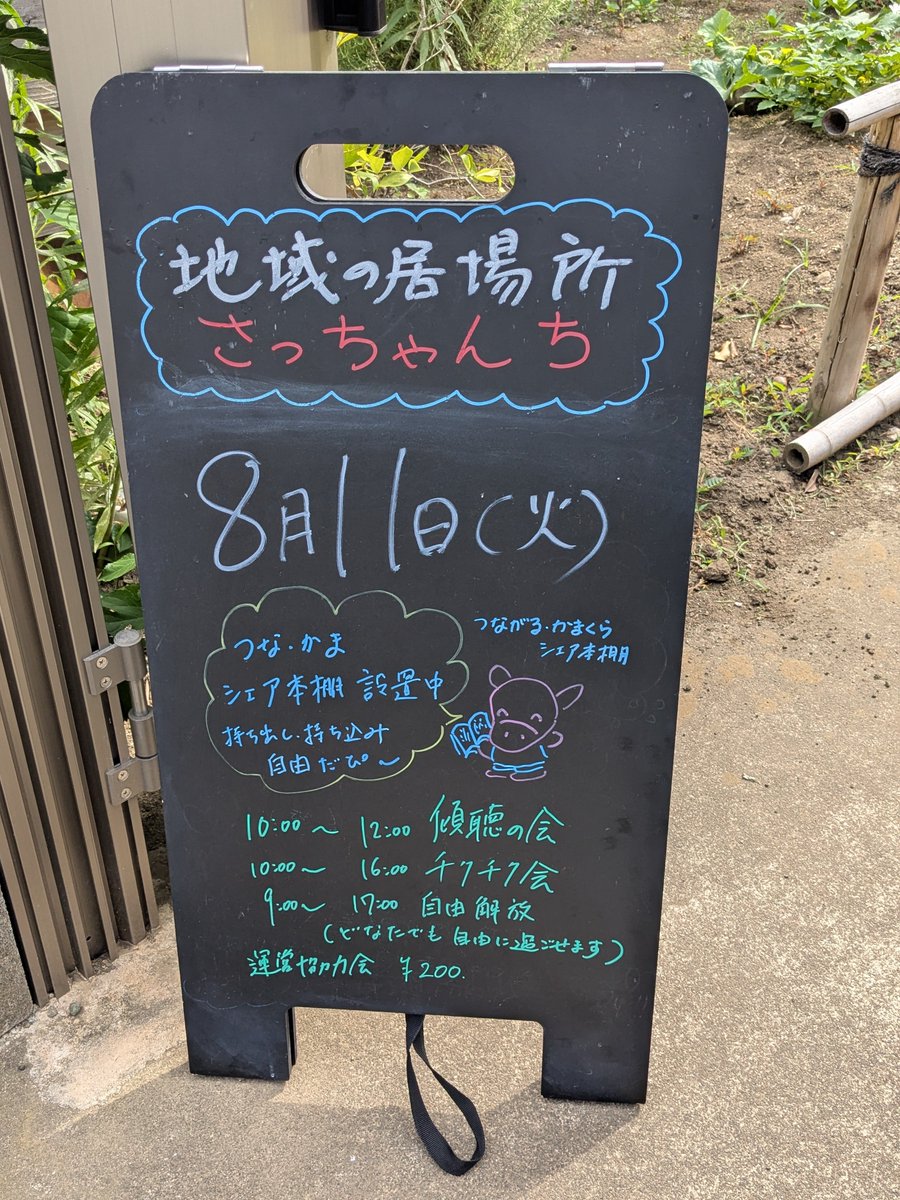 地域の居場所
さっちゃんち
8月11日(火)
つながる・かまくら
シェア本棚
つな・かま
シェア本棚 設置中
持ち出し、持ち込み
自由だぴ〜
10:00〜12:00 傾聴の会
10:00〜16:00 チクチク会
9:00〜17:00 自由解放
(どなたでも自由に過ごせます)
運営協力会 ¥200.